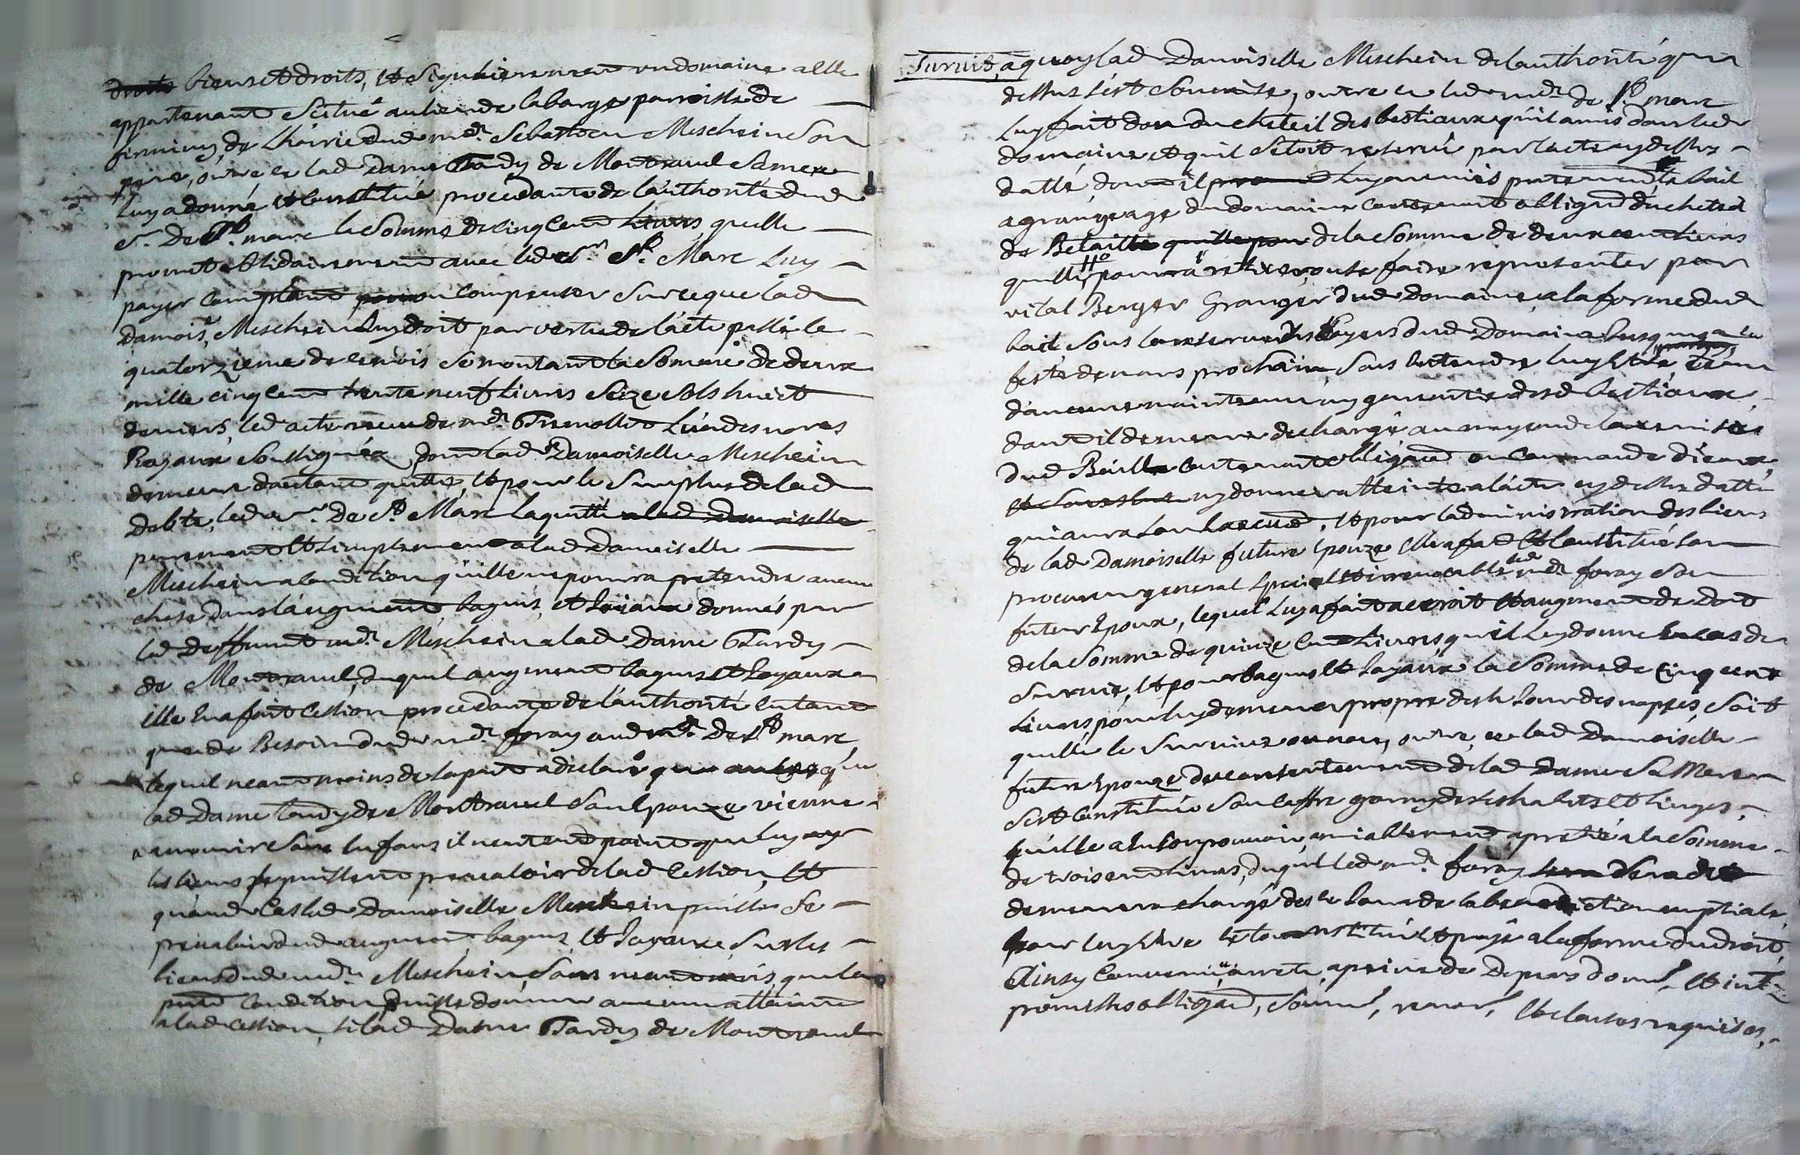 droits biens et droits, et seguliairement un domaine a elle
appartenant scitué au lieu de labarge parroisse de
firminy, de l'hoirie dud md. Sebastien Meschein son
pere, outre ce lad dame Tardy de Montravel sa mere
luy a donné et constitué procedante de l'authorité dud
sr. de St. marc la somme de cinq cent livres qu'elle
promet solidairement avec led sr. St. Marc luy
payer comptant ou compenser sur ce que lad
damois.e Meschein luy doit par vertu de l'acte passé le
quatorzieme de ce mois se montant la somme de deux
mille cinq cent trente neuf livres seize sols huict
deniers, led acte receu de md. Tremollet l'un des nores
Royaux soussignés dont lad Damoiselle Meschein
demeure d'autant quitte, et pour le surplus de lad
debte, led sr. de St. Marc la quitte a lad damoiselle
purement et simplement a lad Damoiselle
Meschein a condition qu'elle ne pourra pretendre aucune
chose dans l'augment, bagues, et joyaux donnés par
led deffunt md. Meschein a lad Dame Tardy
de Montravel, duquel augment bagues et joyaux
elle en a fait cession procedante de l'authorité en tant
que de besoin dud md. foray aud md. De St. marc
lequel neantmoins de sa part a declaré que
lad Dame tardy de Montravel son epouze vienne
a mourir sans enfans il n'entend point que luy ny
les siens se puissent prevaloir de lad Cession, et
qu'aud cas lad Damoiselle Meschein puisse se
prevaloir dud augment, bagues, et joyaux sur les
biens dud md. Meschein, sans neantmoins que la
pnte condition puisse donner aucune atteinte
a lad cession, si lad Dame Tardy de Montravel
survit, a quoy lad Damoiselle Meschein de l'authorité que
dessus s'est soumise, outre ce led md. de St. marc
luy fait don du cheteil des bestiaux qu'il a mis dans led
domaine et qu'il s'etoit reservé par l'acte cy dessus
datté dont il luy a remis presentement le bail
a grangeage du domaine contenant obligaõn du cheteil
de Betaille de la somme de deux cent livres
qu'elle pourra retirer ou se faire representer par
vital Berger Granger dud Domaine a la forme dud
bail, sous la reserve des foyers dud Domaine jusques a la
feste de mars prochain, sans entendre luy estre tenu
d'aucune maintenue ny garentie desd bestiaux,
dont il demeure dechargé au moyen de la remise
dud Bail contenant obligaõn
ny donner atteinte a l'acte cy dessus datté
qui aura son, et pour l'administration des biens
de lad Damoiselle future epouze elle a fait et constitué son
procureur general special et irrevocable led md. foray son
futur epoux, lequel luy a fait accroit et augment de dot
de la somme de quinze cent livres qu'il luy donne en cas de
survie, et pour bagues et joyaux la somme de cinq cent
livres pour luy demeurer propre dez le jour des nopces, soit
qu'elle le survive ou non, outre ce lad Damoiselle
future Epouze du consentement de lad dame sa Mere
s'est constituée son coffre garny de ses habits et linges,
qu'elle a en son pouvoir, amiablement apretié a la somme
de trois cent livres, duquel led md. foray
demeurera chargé dez le jour de la benediction nuptiale
pour luy etre constitué et payé a la forme du droit,
Ainsy convenu, arreté, a peine de depens dom. et int.
promesses obligaõns, soum. renon. et clauses requises,